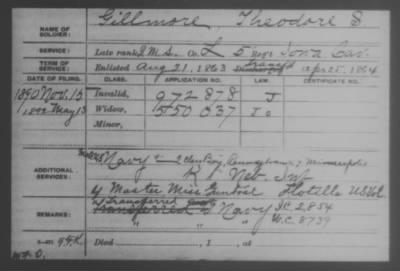 NAME OF SOLDIER: Gillmore, Theodore S.
SERVICE: Late rank, Q.M.S. Co. L 5 Reg't Iowa Cav.
TERM OF SERVICE: Enlisted Aug 21, 1863 Transf'd Apr 25, 1864
DATE OF FILING. CLASS. APPLICATION NO. LAW. CERTIFICATE NO.
1890 Nov. 15 Invalid, 972 878 J
1892 May 13 Widow, 550 037
Minor,
ADDITIONAL SERVICES: Navy
Neb. Inf
4 Master Miss Gunboat Flotilla US Vol.
REMARKS: Transferred Navy I.C. 2,854
" " W.C. 8739
Died , 1 , at